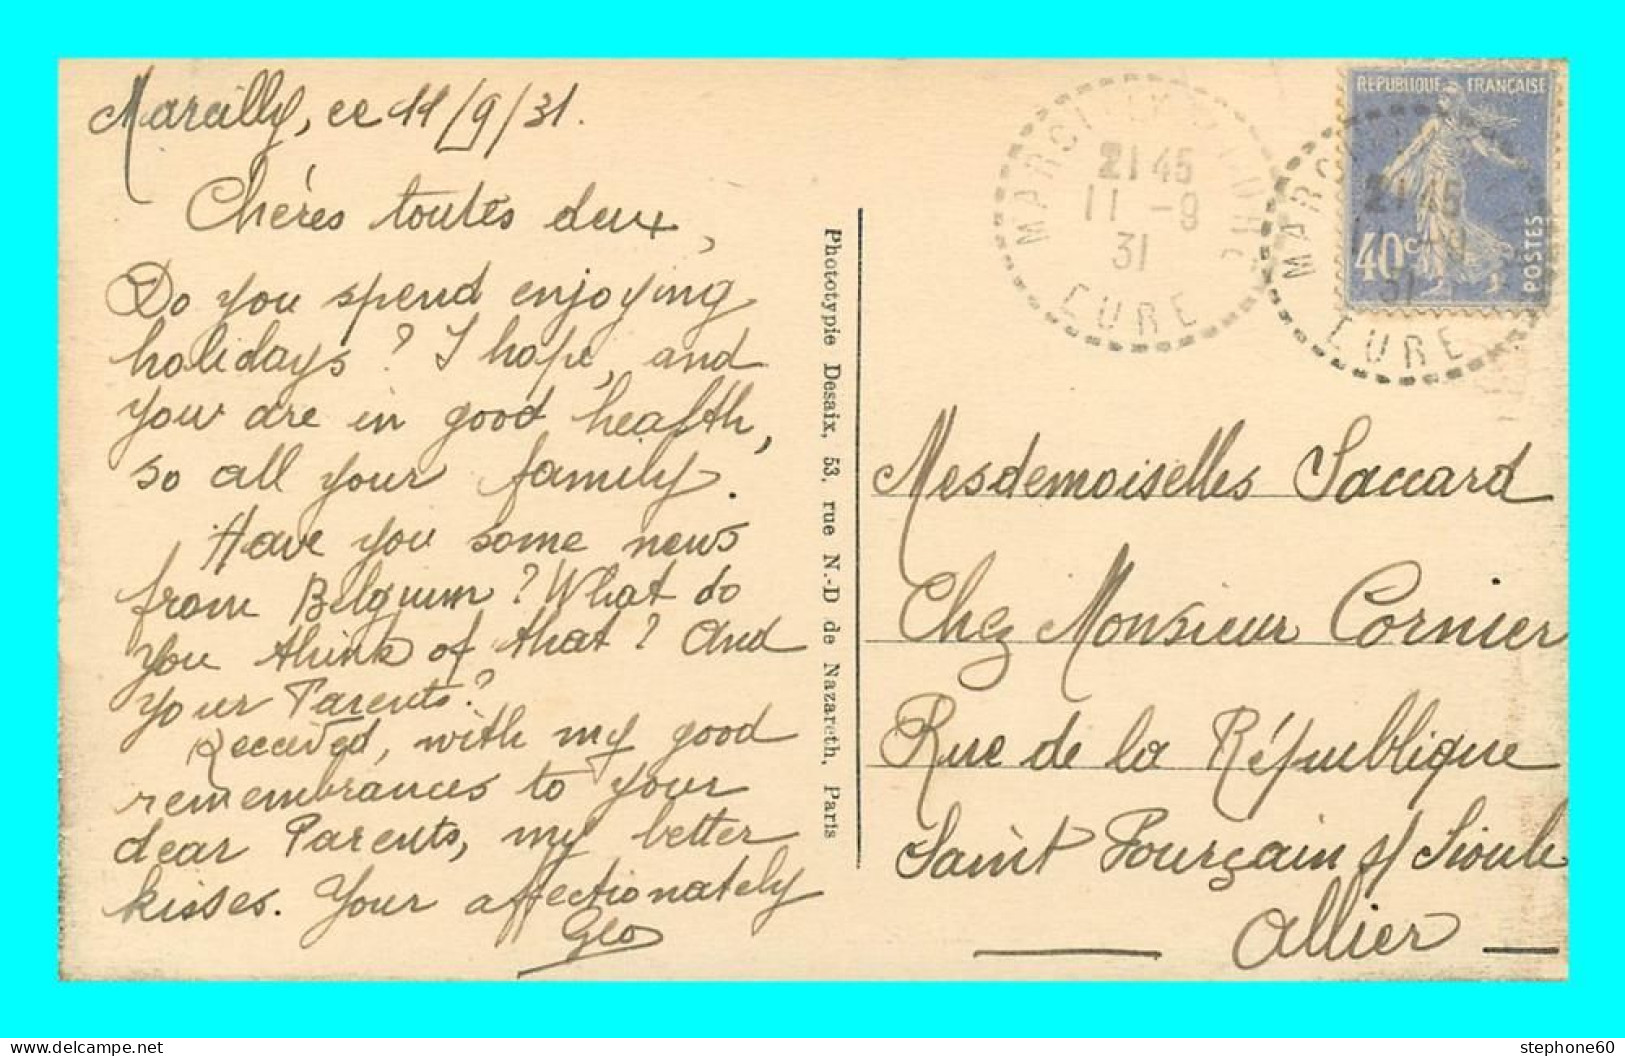 Marcilly, ce 11/9/31.
Chères toutes deux,
Do you spend enjoying
holidays? I hope, and
your are in good heafth,
so all your family.
Have you some news
from Belguum? What do
you think of that? And
your Parents?
Received, with my good
remembrances to your
dear Parents, my better
kisses. Your affectionately
Geo
Phototypie Desaix, 53, rue N.-D de Nazareth, Paris
21 45
11 -9
31
EURE
REPUBLIQUE FRANÇAISE
40c
POSTES
21 45
31
EURE
Mesdemoiselles Saccard
Chez Monsieur Cornier
Rue de la République
Saint Pourçain s/ Sioule
Allier
stephone60